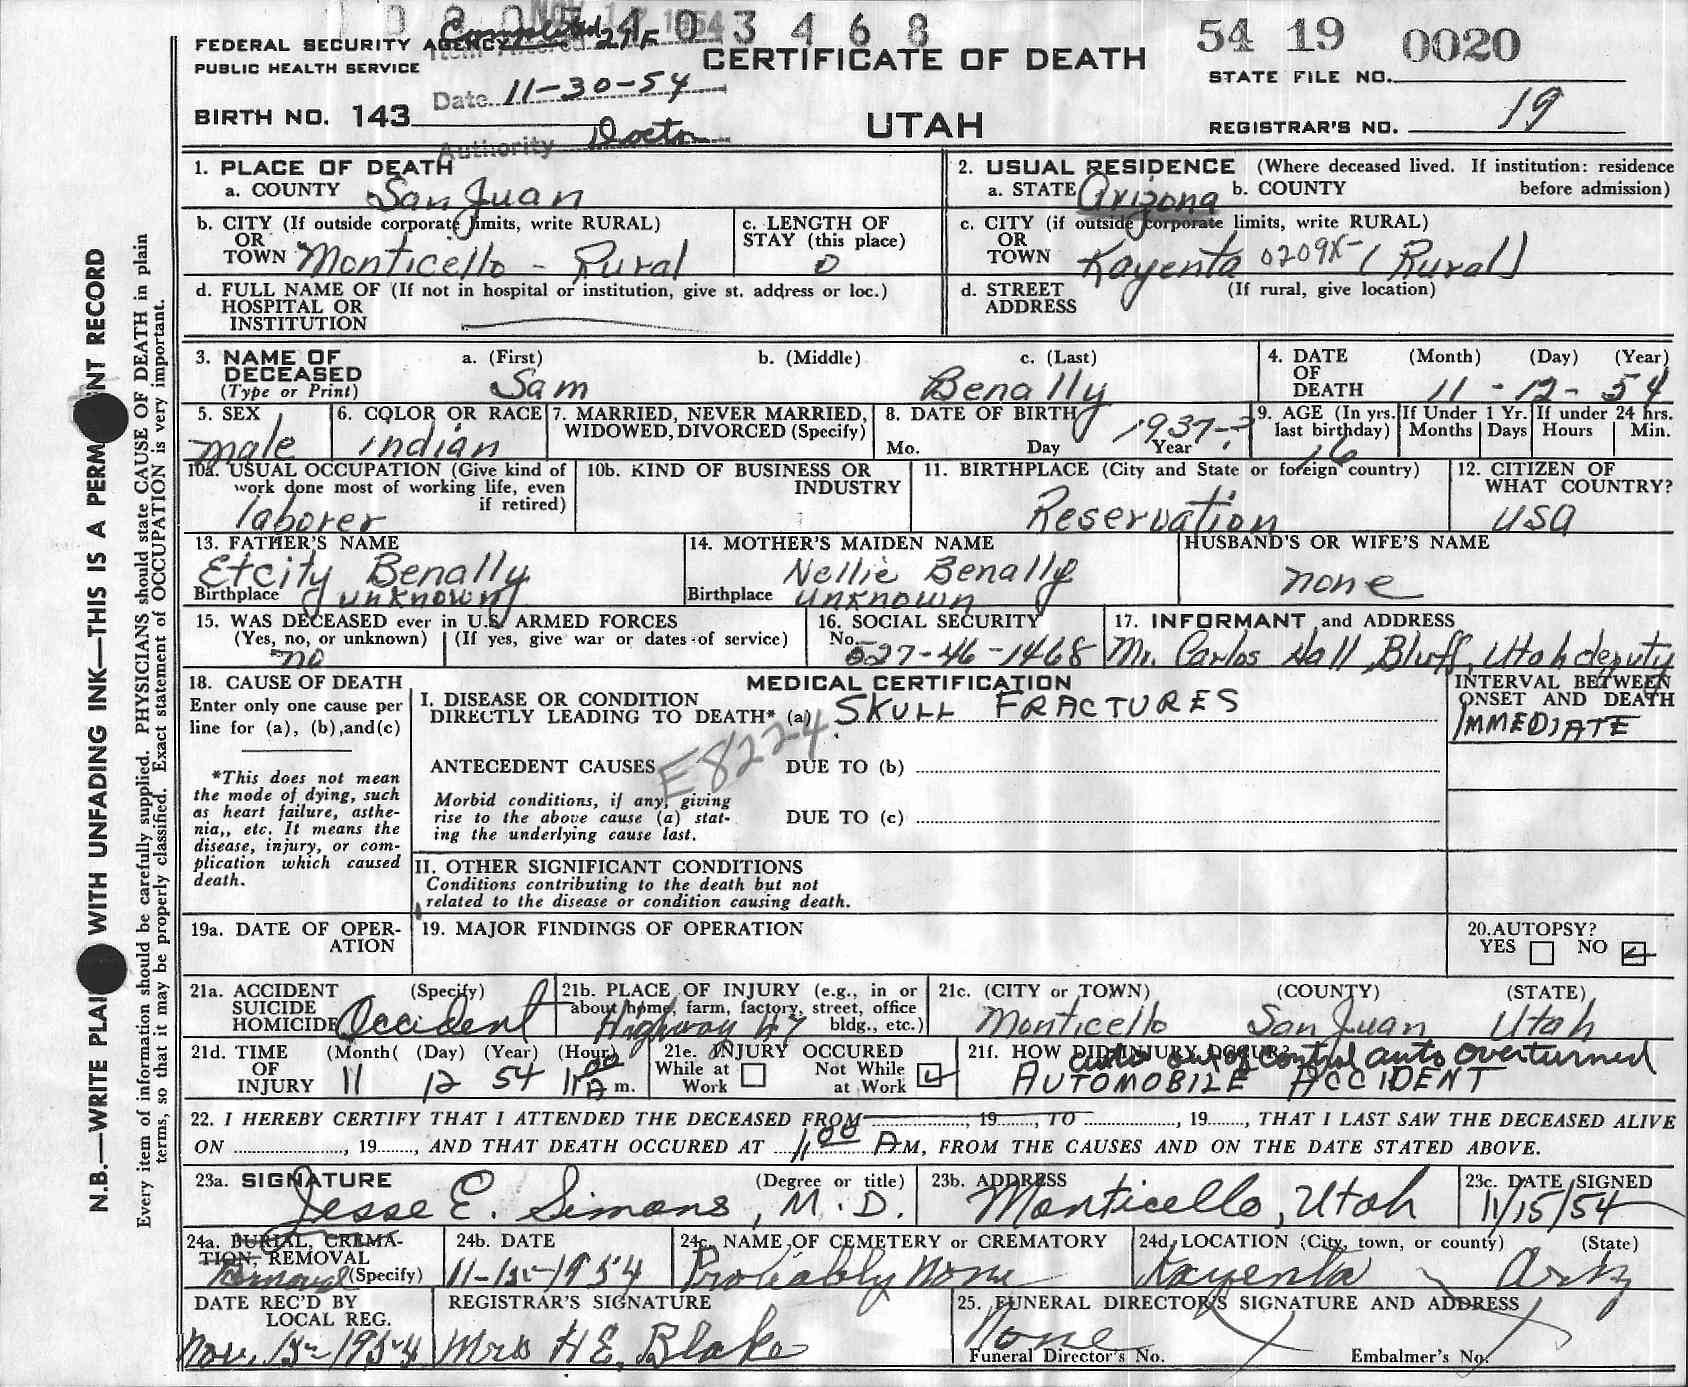 3 4 6 8
54 19 0020
FEDERAL SECURITY AGENCY
PUBLIC HEALTH SERVICE
Completed 21F
CERTIFICATE OF DEATH
STATE FILE NO.
Date 11-30-54
BIRTH NO. 143
UTAH
REGISTRAR'S NO. 19
Authority Doctor
1. PLACE OF DEATH
a. COUNTY San Juan
2. USUAL RESIDENCE (Where deceased lived. If institution: residence before admission)
a. STATE Arizona b. COUNTY
b. CITY (If outside corporate limits, write RURAL)
OR TOWN Monticello - Rural
c. LENGTH OF STAY (this place)
0
c. CITY (if outside corporate limits, write RURAL)
OR TOWN Kayenta 0209X- (Rural)
d. FULL NAME OF (If not in hospital or institution, give st. address or loc.)
HOSPITAL OR INSTITUTION
d. STREET ADDRESS (If rural, give location)
3. NAME OF DECEASED (Type or Print)
a. (First) b. (Middle) c. (Last)
Sam Benally
4. DATE OF DEATH (Month) (Day) (Year)
11 - 12 - 54
5. SEX
male
6. COLOR OR RACE
indian
7. MARRIED, NEVER MARRIED, WIDOWED, DIVORCED (Specify)
8. DATE OF BIRTH
Mo. Day Year
1937-?
9. AGE (In yrs. last birthday)
16
If Under 1 Yr. Months Days
If under 24 hrs. Hours Min.
10a. USUAL OCCUPATION (Give kind of work done most of working life, even if retired)
laborer
10b. KIND OF BUSINESS OR INDUSTRY
11. BIRTHPLACE (City and State or foreign country)
Reservation
12. CITIZEN OF WHAT COUNTRY?
USA
13. FATHER'S NAME
Etcity Benally
Birthplace unknown
14. MOTHER'S MAIDEN NAME
Nellie Benally
Birthplace unknown
HUSBAND'S OR WIFE'S NAME
none
15. WAS DECEASED ever in U.S. ARMED FORCES
(Yes, no, or unknown) (If yes, give war or dates of service)
no
16. SOCIAL SECURITY No.
527-46-1468
17. INFORMANT and ADDRESS
Mr. Carlos Hall Bluff, Utah deputy
18. CAUSE OF DEATH
Enter only one cause per line for (a), (b), and (c)
*This does not mean the mode of dying, such as heart failure, asthenia,, etc. It means the disease, injury, or complication which caused death.
MEDICAL CERTIFICATION
I. DISEASE OR CONDITION DIRECTLY LEADING TO DEATH* (a) SKULL FRACTURES
INTERVAL BETWEEN ONSET AND DEATH
IMMEDIATE
E822-4
ANTECEDENT CAUSES
DUE TO (b)
Morbid conditions, if any, giving rise to the above cause (a) stating the underlying cause last.
DUE TO (c)
II. OTHER SIGNIFICANT CONDITIONS
Conditions contributing to the death but not related to the disease or condition causing death.
19a. DATE OF OPERATION
19. MAJOR FINDINGS OF OPERATION
20. AUTOPSY?
YES NO
21a. ACCIDENT SUICIDE HOMICIDE (Specify)
Accident
21b. PLACE OF INJURY (e.g., in or about home, farm, factory, street, office bldg., etc.)
Highway 47
21c. (CITY or TOWN) (COUNTY) (STATE)
Monticello San Juan Utah
21d. TIME OF INJURY (Month( (Day) (Year) (Hour)
11 12 54 11:00 A m.
21e. INJURY OCCURED
While at Work Not While at Work
21f. HOW DID INJURY OCCUR?
auto out of control auto overturned
AUTOMOBILE ACCIDENT
22. I HEREBY CERTIFY THAT I ATTENDED THE DECEASED FROM , 19 TO , 19 , THAT I LAST SAW THE DECEASED ALIVE
ON , 19 , AND THAT DEATH OCCURED AT 11:00 A M, FROM THE CAUSES AND ON THE DATE STATED ABOVE.
23a. SIGNATURE (Degree or title)
Jesse E. Simons, M.D.
23b. ADDRESS
Monticello, Utah
23c. DATE SIGNED
11/15/54
24a. BURIAL, CREMATION, REMOVAL (Specify)
Removal
24b. DATE
24c. NAME OF CEMETERY or CREMATORY
Probably None
24d. LOCATION (City, town, or county) (State)
Kayenta Ariz
DATE REC'D BY LOCAL REG.
REGISTRAR'S SIGNATURE
Mrs H E. Blake
25. FUNERAL DIRECTOR'S SIGNATURE AND ADDRESS
None
Funeral Director's No. Embalmer's No.
N.B.—WRITE PLAI WITH UNFADING INK—THIS IS A PERM NT RECORD
Every item of information should be carefully supplied. PHYSICIANS should state CAUSE OF DEATH in plain
terms, so that it may be properly classified. Exact statement of OCCUPATION is very important.